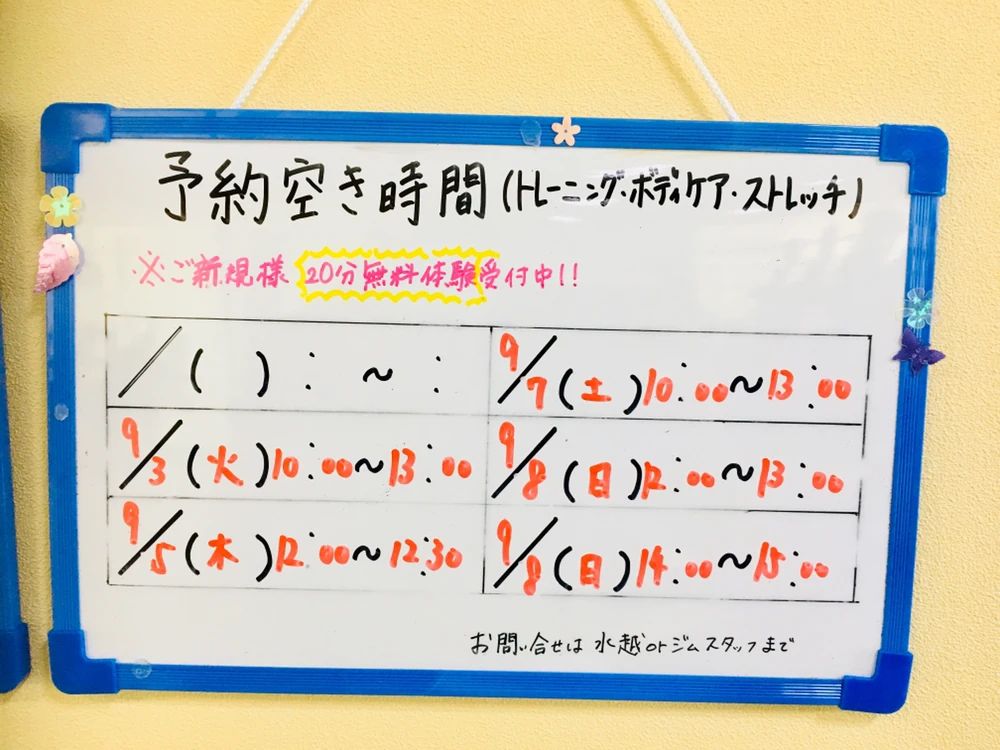 予約空き時間(トレーニング・ボディケア・ストレッチ)
※ご新規様 20分無料体験受付中!!
/ ( ) : ~ :
9/3 (火) 10:00~13:00
9/5 (木) 12:00~12:30
9/7 (土) 10:00~13:00
9/8 (日) 12:00~13:00
9/8 (日) 14:00~15:00
お問い合せは 水越orジムスタッフまで